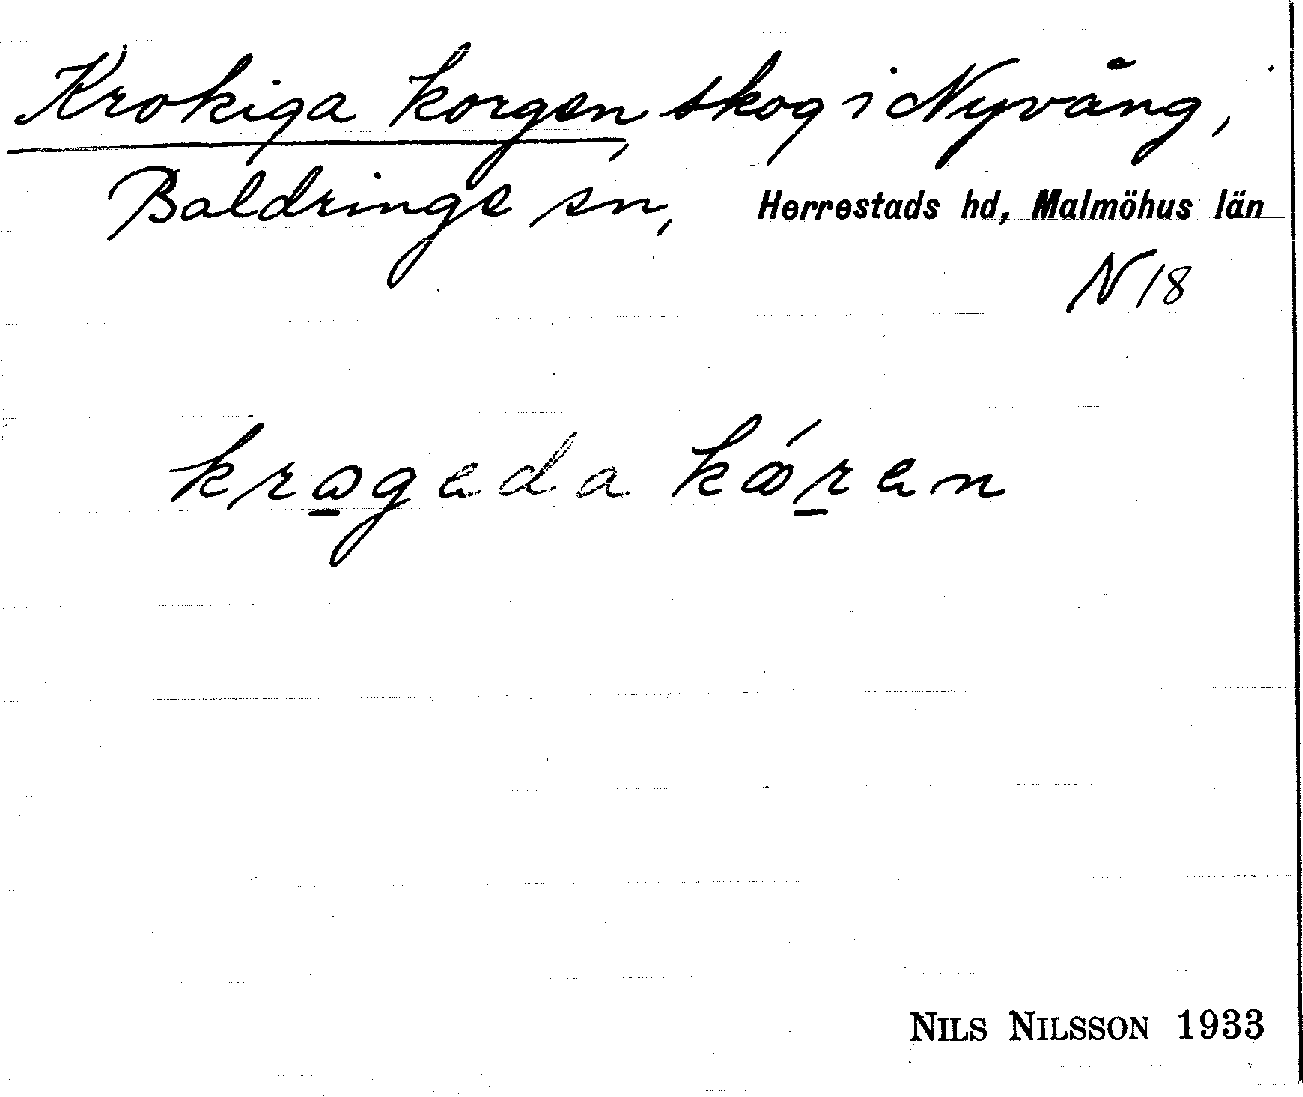 Krokiga korgen, skog i Nyvång,
Baldringe sn, Herrestads hd, Malmöhus län
N 18
krogeda kǿren
NILS NILSSON 1933